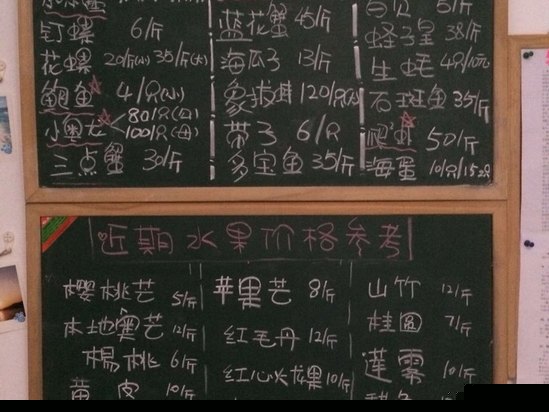 钉螺 6/斤
花螺 20/斤(小) 35/斤(大)
鲍鱼 4/只(小)
小奥龙 80/只(公)
100/只(母)
三点蟹 30/斤
蓝花蟹 45/斤
海瓜子 13/斤
象拔蚌 120/只(大)
带子 6/只
多宝鱼 35/斤
蛏子皇 38/斤
生蚝 4只/10元
石斑鱼 35/斤
爬虾 50/斤
海蛋 10/只/15只
近期水果价格参考
樱桃芒 5/斤
本地奥芒 12/斤
杨桃 6/斤
黄皮 10/斤
苹果芒 8/斤
红毛丹 12/斤
红心火龙果 10/斤
山竹 12/斤
桂圆 7/斤
莲雾 10/斤